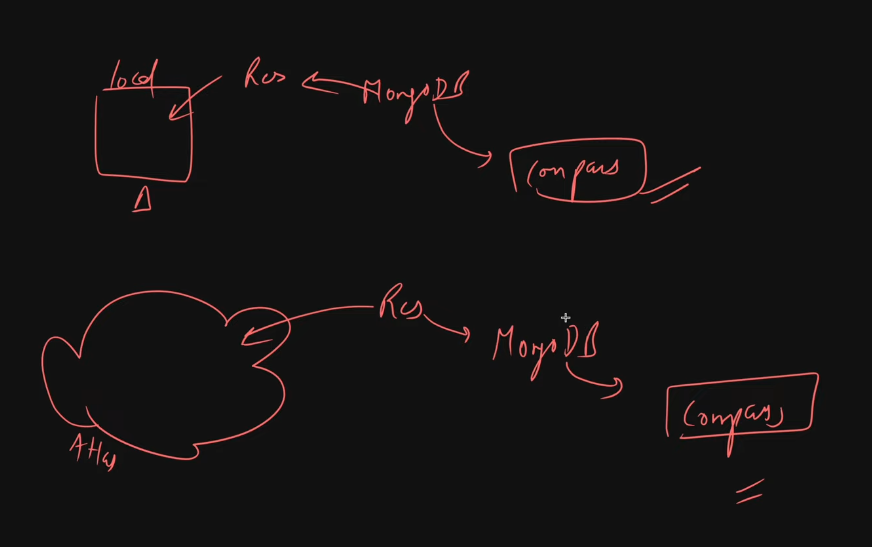 local
Res
MongoDB
Compass
Res
MongoDB
Compass
Atlas